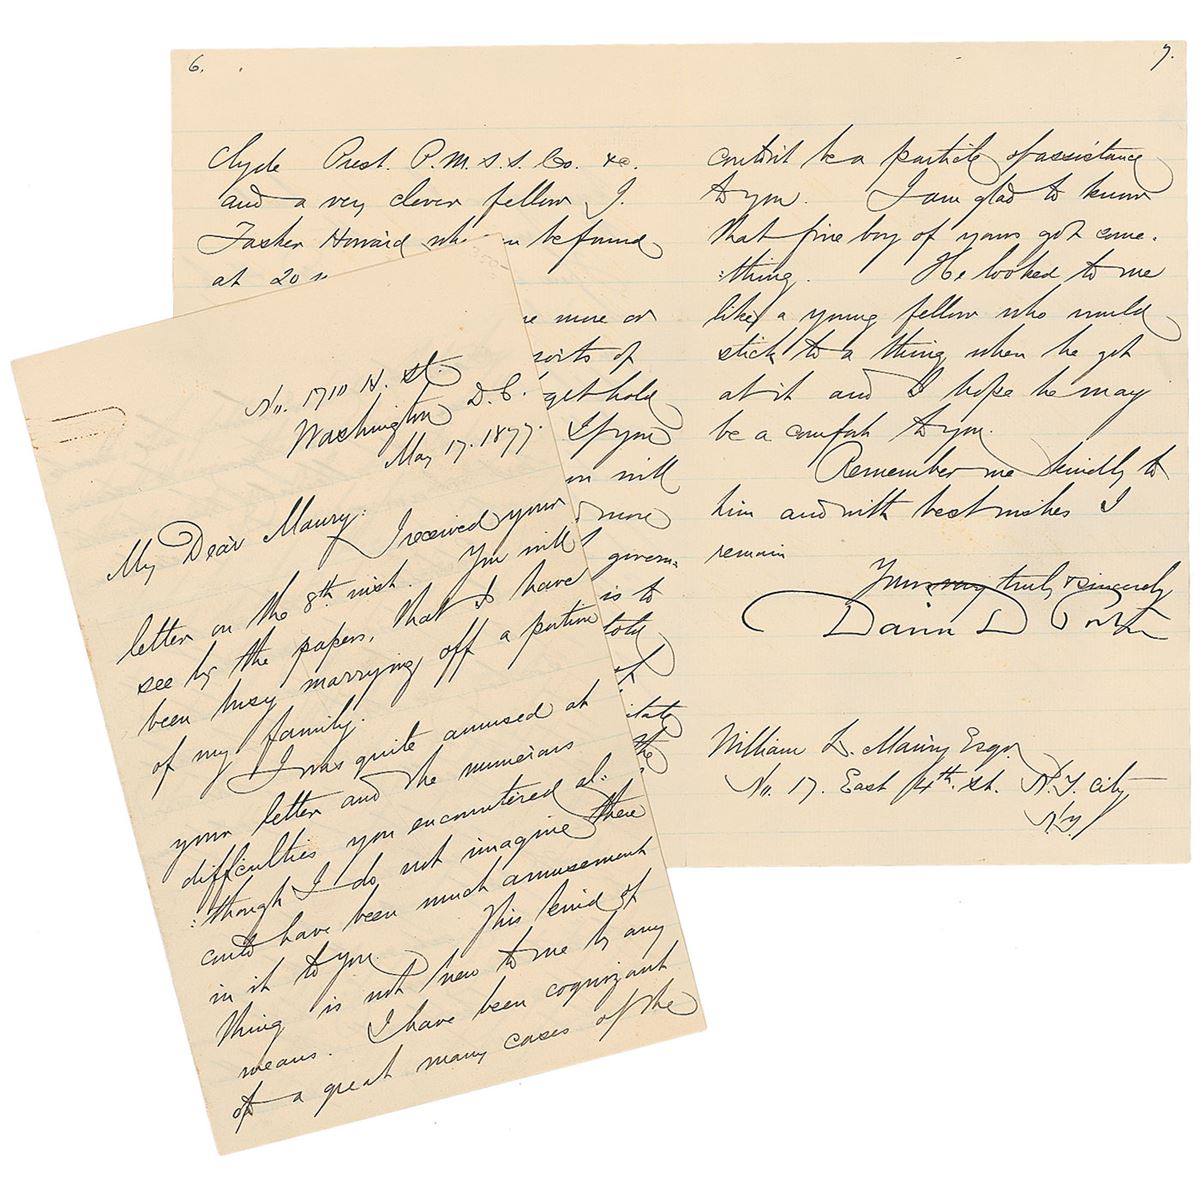 No. 1710 H. St.
Washington D.C.
May 17. 1877.
My Dear Maury:
I received your
letter on the 8th inst. You will
see by the papers, that I have
been busy marrying off a portion
of my family.
I was quite amused at
your letter and the numerous
difficulties you encountered al-
:though I do not imagine there
could have been much amusement
in it to you. This kind of
thing is not new to me by any
means. I have been cognizant
of a great many cases of the
6.
Clyde Prest. P.M.S.S. Co. &c.
and a very clever fellow J.
Tasker Howard who be found
at 20
more or
sorts of
get hold
If you
will
more
govern-
is to
told
the
7.
couldn't be a particle of assistance
to you. I am glad to know
that fine boy of yours got some-
:thing. He looked to me
like a young fellow who would
stick to a thing when he got
at it and I hope he may
be a comfort to you.
Remember me kindly to
him and with best wishes I
remain
Yours very truly & sincerely
David D Porter
William L. Maury Esqr.
No. 17. East 14th. St. N.Y. City
N.Y.